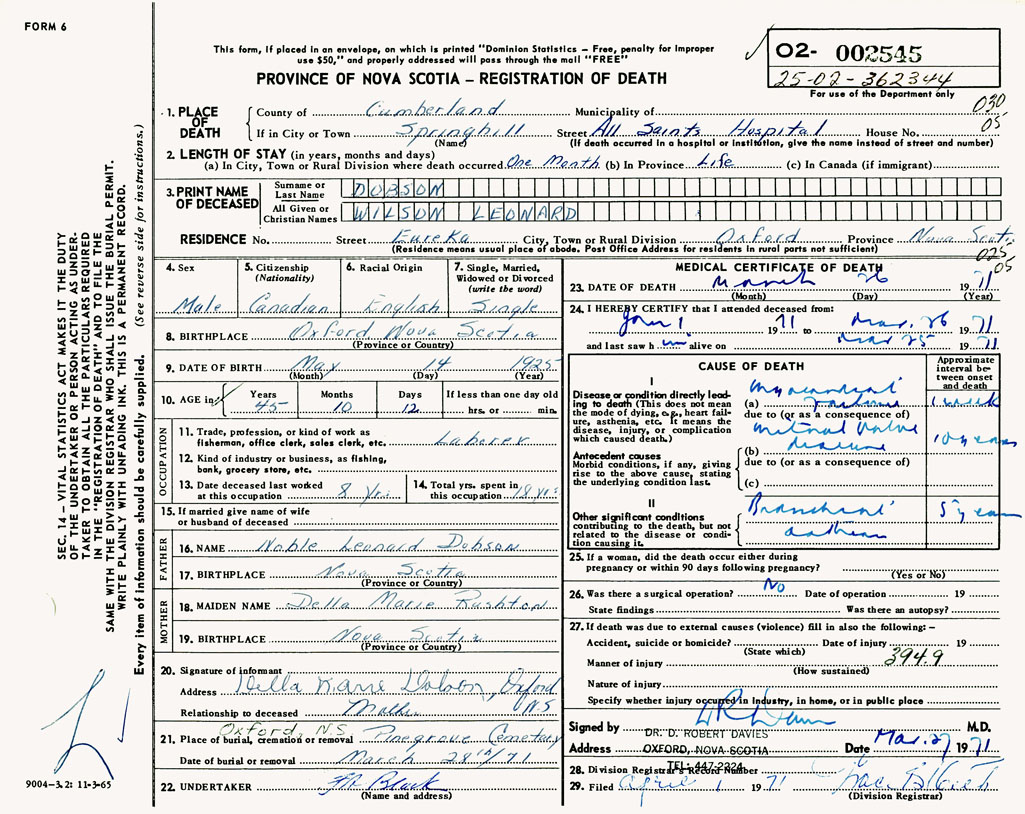 FORM 6
This form, if placed in an envelope, on which is printed "Dominion Statistics – Free, penalty for improper
use $50," and properly addressed will pass through the mail "FREE"
PROVINCE OF NOVA SCOTIA – REGISTRATION OF DEATH
02- 002545
25-02-362344
For use of the Department only
030
05
1. PLACE OF DEATH
County of Cumberland Municipality of
If in City or Town Springhill Street All Saints Hospital House No.
(Name) (If death occurred in a hospital or institution, give the name instead of street and number)
2. LENGTH OF STAY (in years, months and days)
(a) In City, Town or Rural Division where death occurred One Month (b) In Province Life (c) In Canada (if immigrant)
3. PRINT NAME OF DECEASED
Surname or Last Name DOBSON
All Given or Christian Names WILSON LEONARD
RESIDENCE No. Street Eureka City, Town or Rural Division Oxford Province Nova Scotia
(Residence means usual place of abode. Post Office Address for residents in rural parts not sufficient)
025
05
4. Sex
Male
5. Citizenship (Nationality)
Canadian
6. Racial Origin
English
7. Single, Married, Widowed or Divorced (write the word)
Single
8. BIRTHPLACE Oxford Nova Scotia
(Province or Country)
9. DATE OF BIRTH May 14 1925
(Month) (Day) (Year)
10. AGE in Years 45 Months 10 Days 12 If less than one day old hrs. or min.
OCCUPATION
11. Trade, profession, or kind of work as
fisherman, office clerk, sales clerk, etc. Laborer
12. Kind of industry or business, as fishing,
bank, grocery store, etc.
13. Date deceased last worked at this occupation 8 yrs.
14. Total yrs. spent in this occupation 18 yrs
15. If married give name of wife
or husband of deceased
FATHER
16. NAME Noble Leonard Dobson
17. BIRTHPLACE Nova Scotia
(Province or Country)
MOTHER
18. MAIDEN NAME Della Marie Rushton
19. BIRTHPLACE Nova Scotia
(Province or Country)
20. Signature of informant
Address Della Marie Dobson, Oxford N.S
Relationship to deceased Mother
Oxford, N.S
21. Place of burial, cremation or removal Pinegrove Cemetery
Date of burial or removal March 28th/71
22. UNDERTAKER Black
(Name and address)
MEDICAL CERTIFICATE OF DEATH
23. DATE OF DEATH March 26 1971
(Month) (Day) (Year)
24. I HEREBY CERTIFY that I attended deceased from:
Jan 1 1971 to Mar. 26 1971
and last saw him alive on Mar 25 1971
CAUSE OF DEATH
Approximate interval between onset and death
I
Disease or condition directly leading to death (This does not mean the mode of dying, e.g., heart failure, asthenia, etc. It means the disease, injury, or complication which caused death.)
(a) myocardial failure 1 week
due to (or as a consequence of)
Antecedent causes
Morbid conditions, if any, giving rise to the above cause, stating the underlying condition last.
(b) mitral valve disease 10 years
due to (or as a consequence of)
(c)
II
Other significant conditions contributing to the death, but not related to the disease or condition causing it.
Bronchial asthma 5 years
25. If a woman, did the death occur either during
pregnancy or within 90 days following pregnancy?
(Yes or No)
26. Was there a surgical operation? No Date of operation 19
State findings Was there an autopsy?
27. If death was due to external causes (violence) fill in also the following: –
Accident, suicide or homicide? Date of injury 19
(State which)
394.9
Manner of injury
(How sustained)
Nature of injury
Specify whether injury occurred in Industry, in home, or in public place
Signed by M.D.
DR. D. ROBERT DAVIES
Address OXFORD, NOVA SCOTIA Date Mar. 27 1971
TEL: 447-2224
28. Division Registrar's Record Number
29. Filed April 1 1971
(Division Registrar)
SEC. 14 – VITAL STATISTICS ACT MAKES IT THE DUTY
OF THE UNDERTAKER OR PERSON ACTING AS UNDER-
TAKER TO OBTAIN ALL THE PARTICULARS REQUIRED
IN THE "REGISTRATION OF DEATH" AND TO FILE THE
SAME WITH THE DIVISION REGISTRAR WHO SHALL ISSUE THE BURIAL PERMIT.
WRITE PLAINLY WITH UNFADING INK. THIS IS A PERMANENT RECORD.
Every item of information should be carefully supplied. (See reverse side for instructions.)
9004–3.2: 11-3-65